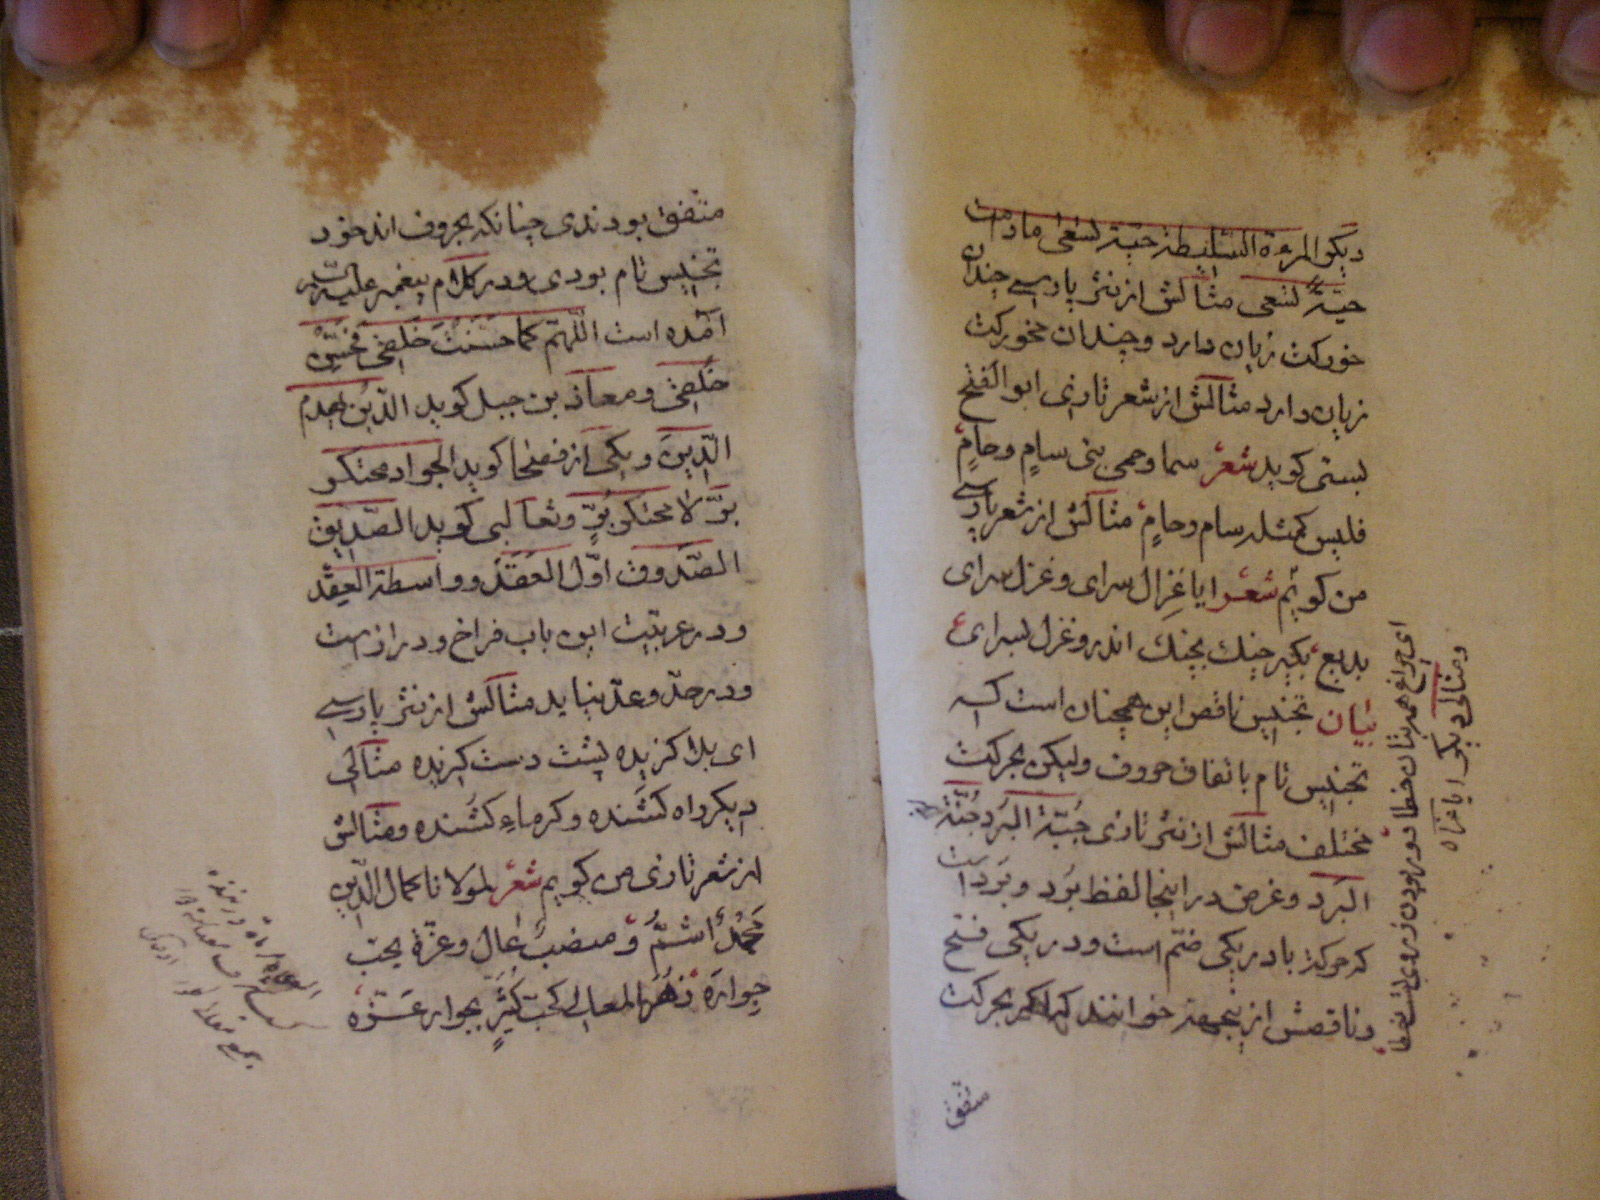 دیکر المرءة السلیطة حیّة تسعی مادامت
حیّةً تسعی مثالش از نثر پارسی چندان
خورکت زیان دارد و چندان نخورکت
زیان دارد مثالش از شعر تازی ابو الفتح
بستی کوید شعر سما وحمی بنی سامٍ وحامٍ
فلیس کمثله سام وحامٍ مثالش از شعر پارسی
من کویم شعر ایا غزال سرای و غزل سرای
بدیع بکیر چنك بچنك اندر و غزل بسرای
بیان تجنیس ناقص این همچنان است که
تجنیس تام باتفاق حروف ولیکن بحرکت
مختلف مثالش از نثر تازی جبّة البُرد جُنّة
البَرد و غرض در اینجا لفظ بُرد و بَرد است
که حرکت با در یکی ضمّ است و در یکی فتح
و ناقصش ازینجهة خوانند که اکر بحرکت
متفق
ومثالی دیکر
متفق بودندی چنانکه بحروف اند خود
تجنیس تام بودی و در کلام پیغمبر علیه السّلام
آمده است اللّهمّ کما حسّنتَ خَلقی فحسّن
خُلقی و معاذ بن جبل کوید الدَّین یهدم
الدِّینَ و یکی از فصحا کوید الجواد محتکر
بِرّ لا محتکر بُرٍّ و ثعالبی کوید الصّدیق
الصّدوق اوّل العَقد و واسطة العِقد
و در عربیّت این باب فراخ و دراز است
و در حدّ و عدّ نیاید مثالش از نثر پارسی
ای بلا کزیده پشت دست کزیده مثالی
دیکر داه کشنده و کرماء کشنده و مثالش
از شعر تازی من کویم شعر لمولانا کمال الدّین
مَجْدٌ أشمُّ و منصبٌ عال وعزّة یحبّ
جواره زهر المعالی کحبّ کُثیّرٍ بجوار عَزّه